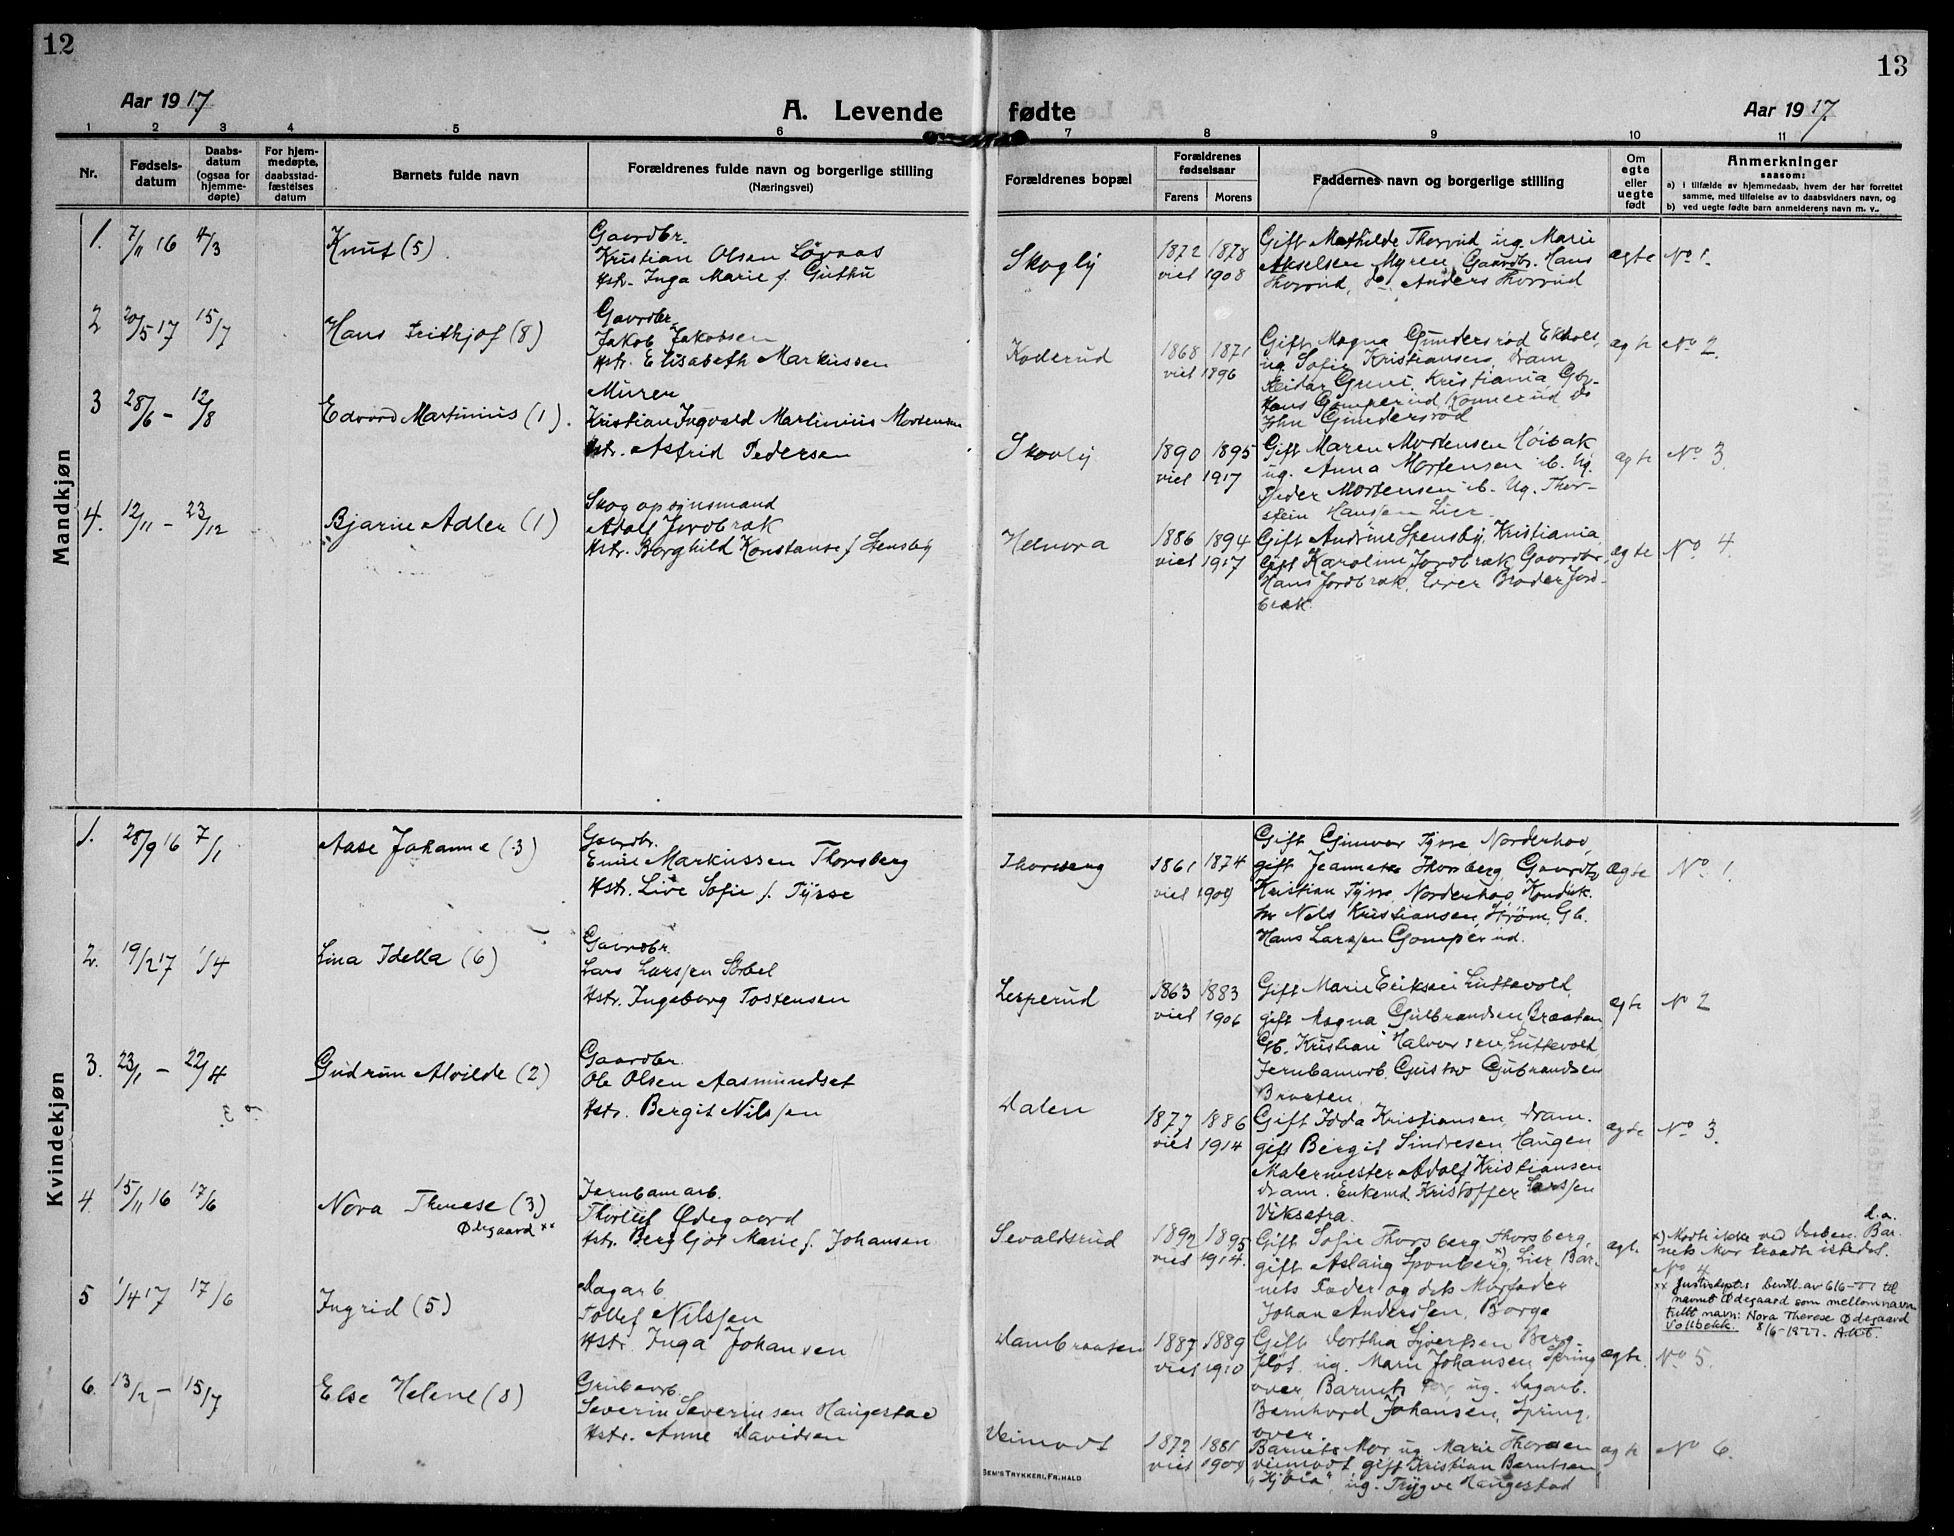 12
13
Aar 1917
A. Levende fødte
Aar 1917
1 2 3 4 5 6 7 8 9 10 11
Nr.
Fødsels-
datum
Daabs-
datum
(ogsaa for
hjemme-
døpte)
For hjem-
medøpte,
daabsstad-
fæstelses
datum
Barnets fulde navn
Forældrenes fulde navn og borgerlige stilling
(Næringsvei)
Forældrenes bopæl
Forældrenes
fødselsaar
Farens Morens
Faddernes navn og borgerlige stilling
Om
egte
eller
uegte
født
Anmerkninger
saasom:
a) i tilfælde av hjemmedaab, hvem der har forrettet
samme, med tilføielse av to daabsvidners navn, og
b) ved uegte fødte barn anmelderens navn m. v.
Mandkjøn
1. 7/11 16 4/3 Knut (5).
Gaardbr.
Kristian Olsen Løvaas
Hstr. Inga Marie f. Guthu
Skogly
1872 1878
viet 1908
Gift Mathilde Thorrud ug. Marie
Akselsen Myren, Gaardbr. Hans
Thorrud, do. Anders Thorrud
ægte No 1.
2 20/5 17 15/7 Hans Frithjof (8)
Gaardbr.
Jakob Jakobsen
Hstr. Elisabeth Markussen
Koderud
1868 1871
viet 1896
Gift Magna Gundersrød Ekholt,
ug. Sofie Kristiansen, Dram.
Reidar Greni, Kristiania, Gbr.
Hans Gomperud, Konnerud, do
John Gundersrød
ægte No 2.
3 28/6 - 12/8 Edvard Martinius (1).
Murer
Kristian Ingvald Martinius Mortensen
Hstr. Astrid Pedersen
Skovly
1890 1895
viet 1917
Gift Maren Mortensen Høibak
ug. Anna Mortensen ib. Ug.
Peder Mortensen ib. Ug. Thor-
stein Hansen Lier.
ægte No 3.
4. 12/11 - 23/12 Bjarne Adler (1)
Skogopsynsmand
Adolf Jordbræk
Hstr. Borghild Konstanse f. Stensby
Helvora
1886 1894
viet 1917
Gift Andrine Stensby, Kristiania
Gift Karoline Jordbræk, Gaardbr.
Hans Jordbræk, Elever Broder Jord-
bræk.
ægte No 4.
Kvindekjøn
1. 28/9 16 7/1 Aase Johanne (3)
Gaardbr.
Emil Markussen Thorsberg
Hstr. Live Sofie f. Tyrse
Thorsberg
1861 1874
viet 1909
Gift Gunvor Tysse, Norderhov,
gift Jeanette Thorsberg, Gaardb.
Kristian Tysse, Norderhov, Konduk-
tør Nils Kristiansen, Strøm, Gb.
Hans Larsen Gomperud.
Ægte No 1.
2. 19/2 17 1/4 Lina Idella (6)
Gaardbr.
Lars Larssen Sørbel
Hstr. Ingeborg Tostensen
Lesperud
1863 1883
viet 1906
Gift Marie Eriksen Luttevold,
gift Magna Gulbrandsen Braaten,
Gb. Kristian Halvorsen, Luttevold,
Jernbanearb. Gustav Gubrandsen
Braaten.
ægte No 2
3. 23/1 - 22/4 Gudrun Alvilde (2)
Gaardbr.
Ole Olsen Aasmundset
Hstr. Bergit Nilssen
Dalen
1877 1886
viet 1914
Gift Idda Kristiansen, Dram.
gift Bergit Sindresen, Haugen
Malermester Adolf Kristiansen
Dram. Enkemd. Kristoffer Larsen
Viksetra.
ægte No 3.
4. 15/11 16 17/6 Nora Therese (3)
Ødegaard xx
Jernbanearb.
Thorleif Ødegaard
Hstr. Bergljot Marie f. Johansen
Sevaldsrud
1892 1895
viet 1914.
Gift Sofie Thorsberg Thorsberg,
gift Aslaug Sponberg x), Lier, Bar-
nets Fader og dets Morfader
Johan Andersen, Borge
ægte
x) Møtte ikke ved Daaben. Bar-
nets Mor traadte istedet. d.a.
No 4
xx Justisdepts bevill. av 6/6-77 til
navnet Ødegaard som mellomnavn
Fullt navn: Nora Therese Ødegaard
Vollbekk. 8/6-1977.
5 1/4 17 17/6 Ingrid (5)
Dagarb.
Tollef Nilssen
Hstr. Inga Johansen
Dambraaten
1887 1889
viet 1910
Gift Dorthea Syversen Berg-
fløt, ug. Marie Johansen Spring-
over, Barnets Far, ug. Dagarb.
Bernhard Johansen, Spring-
over.
ægte. No 5.
6. 13/2 - 15/7 Else Helene (8)
Grubearb.
Severin Severinsen Haugestad
Hstr. Anne Davidsen
Veimodt
1872 1881
viet 1900
Barnets Mor, ug. Marie Thorsen
Veimodt, gift Kristian Berntsen
"Hjvia", ug. Trygve Haugestad
ægte No 6.
SEM'S TRYKKERI, FR.HALD